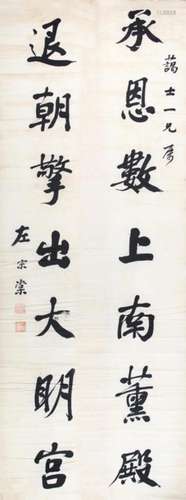 承恩數上南薰殿
藹士一兄屬
退朝擎出大明宮
左宗棠